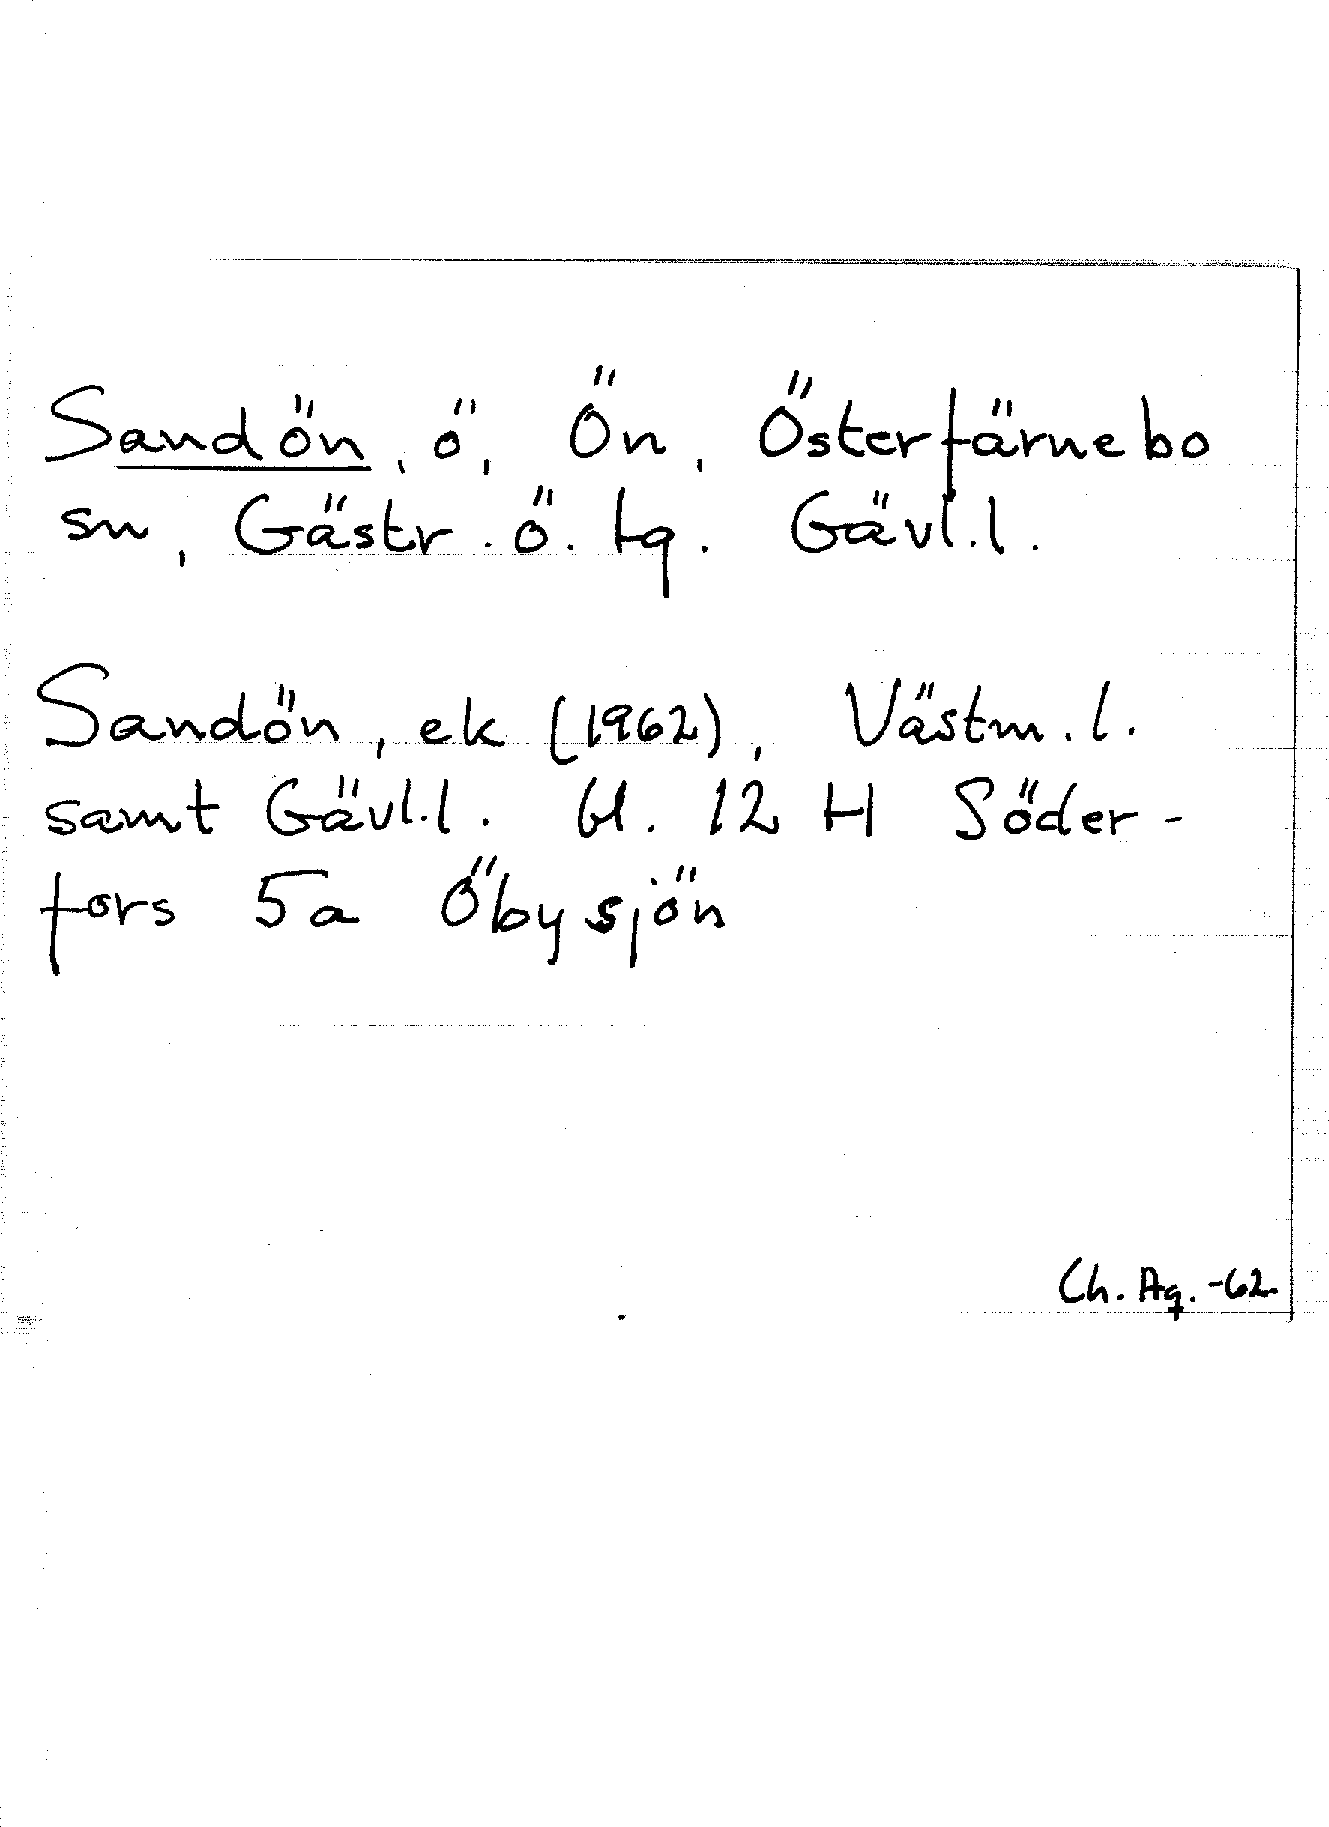 Sandön, ö, Ön, Österfärnebo
sn, Gästr. ö. tg. Gävl.l.
Sandön, ek (1962), Västm.l.
samt Gävl.l. bl. 12 H Söder-
fors 5a Öbysjön
Ch. Ag. -62.